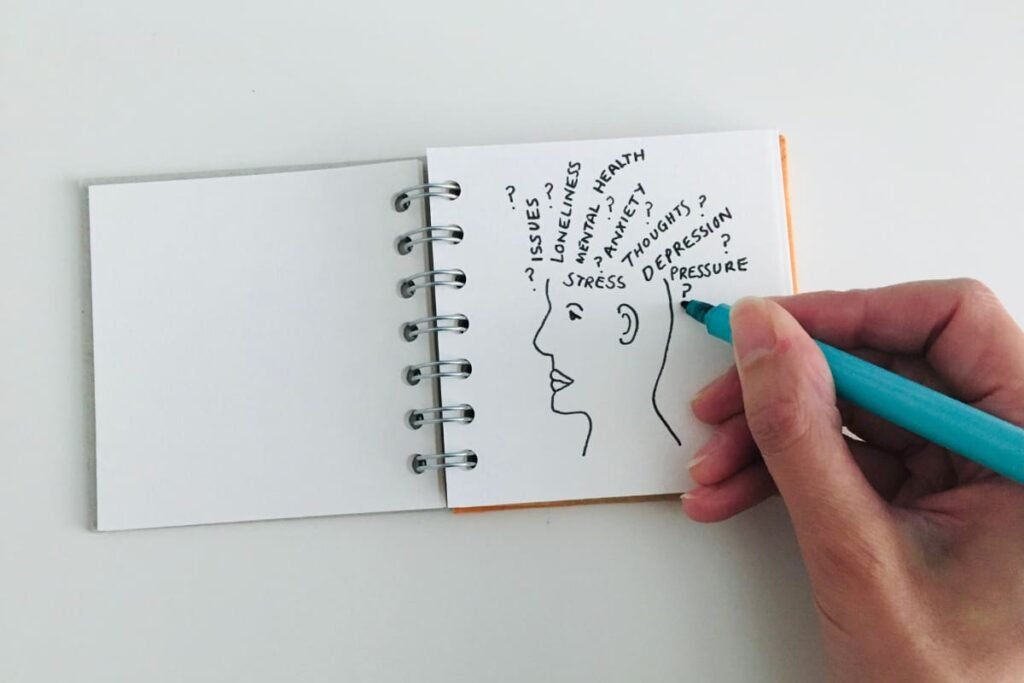 ?
ISSUES
?
LONELINESS
?
MENTAL HEALTH
?
ANXIETY
?
?
THOUGHTS
?
DEPRESSION
?
STRESS
PRESSURE
?